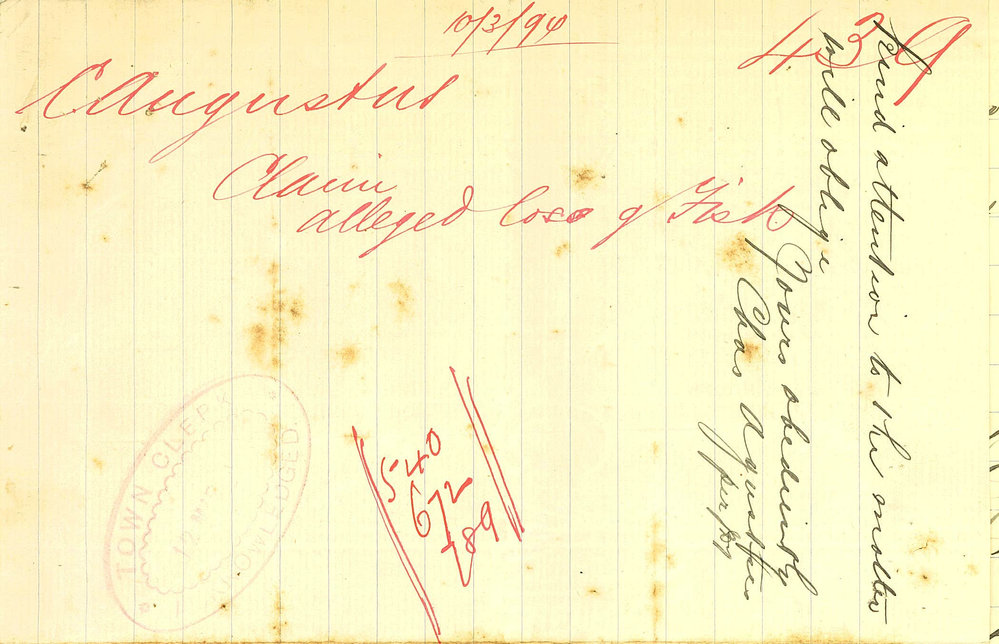 10/3/94
439
C Augustus
Claim
alleged loss of Fish
540
672
789
TOWN CLERK
12 MAR
ACKNOWLEDGED.
Kind attention to the matter
will oblige
Yours obediently
Chas Agustus
per